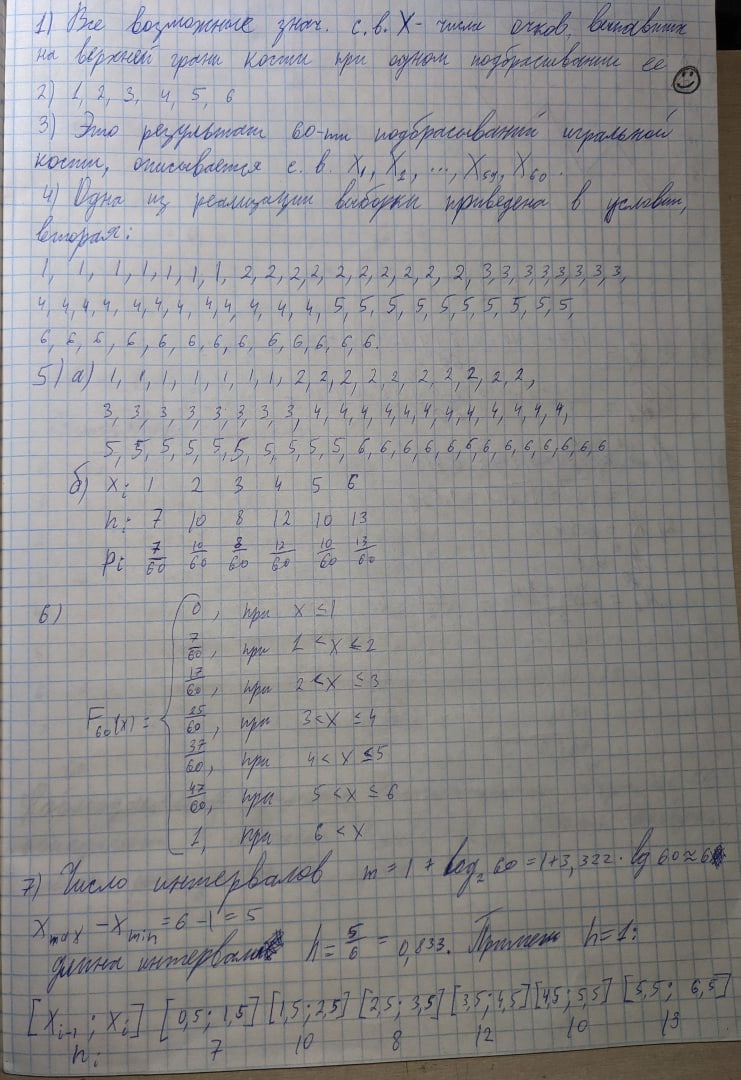 1) Все возможные знач. с.в. X - числа очков, выпавших
на верхней грани кости при одном подбрасывании ее
2) 1, 2, 3, 4, 5, 6
3) Это результат 60-ти подбрасываний игральной
кости, описывается с. в. X₁, X₂, ..., X₅₉, X₆₀.
4) Одна из реализации выборки приведена в условии,
вторая:
1, 1, 1, 1, 1, 1, 1, 2, 2, 2, 2, 2, 2, 2, 2, 2, 2, 3, 3, 3, 3, 3, 3, 3, 3,
4, 4, 4, 4, 4, 4, 4, 4, 4, 4, 4, 4, 5, 5, 5, 5, 5, 5, 5, 5, 5, 5,
6, 6, 6, 6, 6, 6, 6, 6, 6, 6, 6, 6, 6.
5) а) 1, 1, 1, 1, 1, 1, 1, 2, 2, 2, 2, 2, 2, 2, 2, 2, 2,
3, 3, 3, 3, 3, 3, 3, 3, 4, 4, 4, 4, 4, 4, 4, 4, 4, 4, 4, 4,
5, 5, 5, 5, 5, 5, 5, 5, 5, 5, 6, 6, 6, 6, 6, 6, 6, 6, 6, 6, 6, 6, 6
б) xᵢ 1 2 3 4 5 6
nᵢ 7 10 8 12 10 13
pᵢ 7/60 10/60 8/60 12/60 10/60 13/60
6)
0, при x ≤ 1
7/60, при 1 < x ≤ 2
17/60, при 2 < x ≤ 3
F₆₀(x) = 25/60, при 3 < x ≤ 4
37/60, при 4 < x ≤ 5
47/60, при 5 < x ≤ 6
1, при 6 < x
7) Число интервалов m = 1 + log₂ 60 = 1+3,322 · lg 60 ≈ 6
X max - X min = 6 - 1 = 5
длина интервала h = 5/6 = 0,833. Примем h = 1:
[xᵢ₋₁ ; xᵢ] [0,5 ; 1,5] [1,5 ; 2,5] [2,5 ; 3,5] [3,5 ; 4,5] [4,5 ; 5,5] [5,5 ; 6,5]
nᵢ 7 10 8 12 10 13